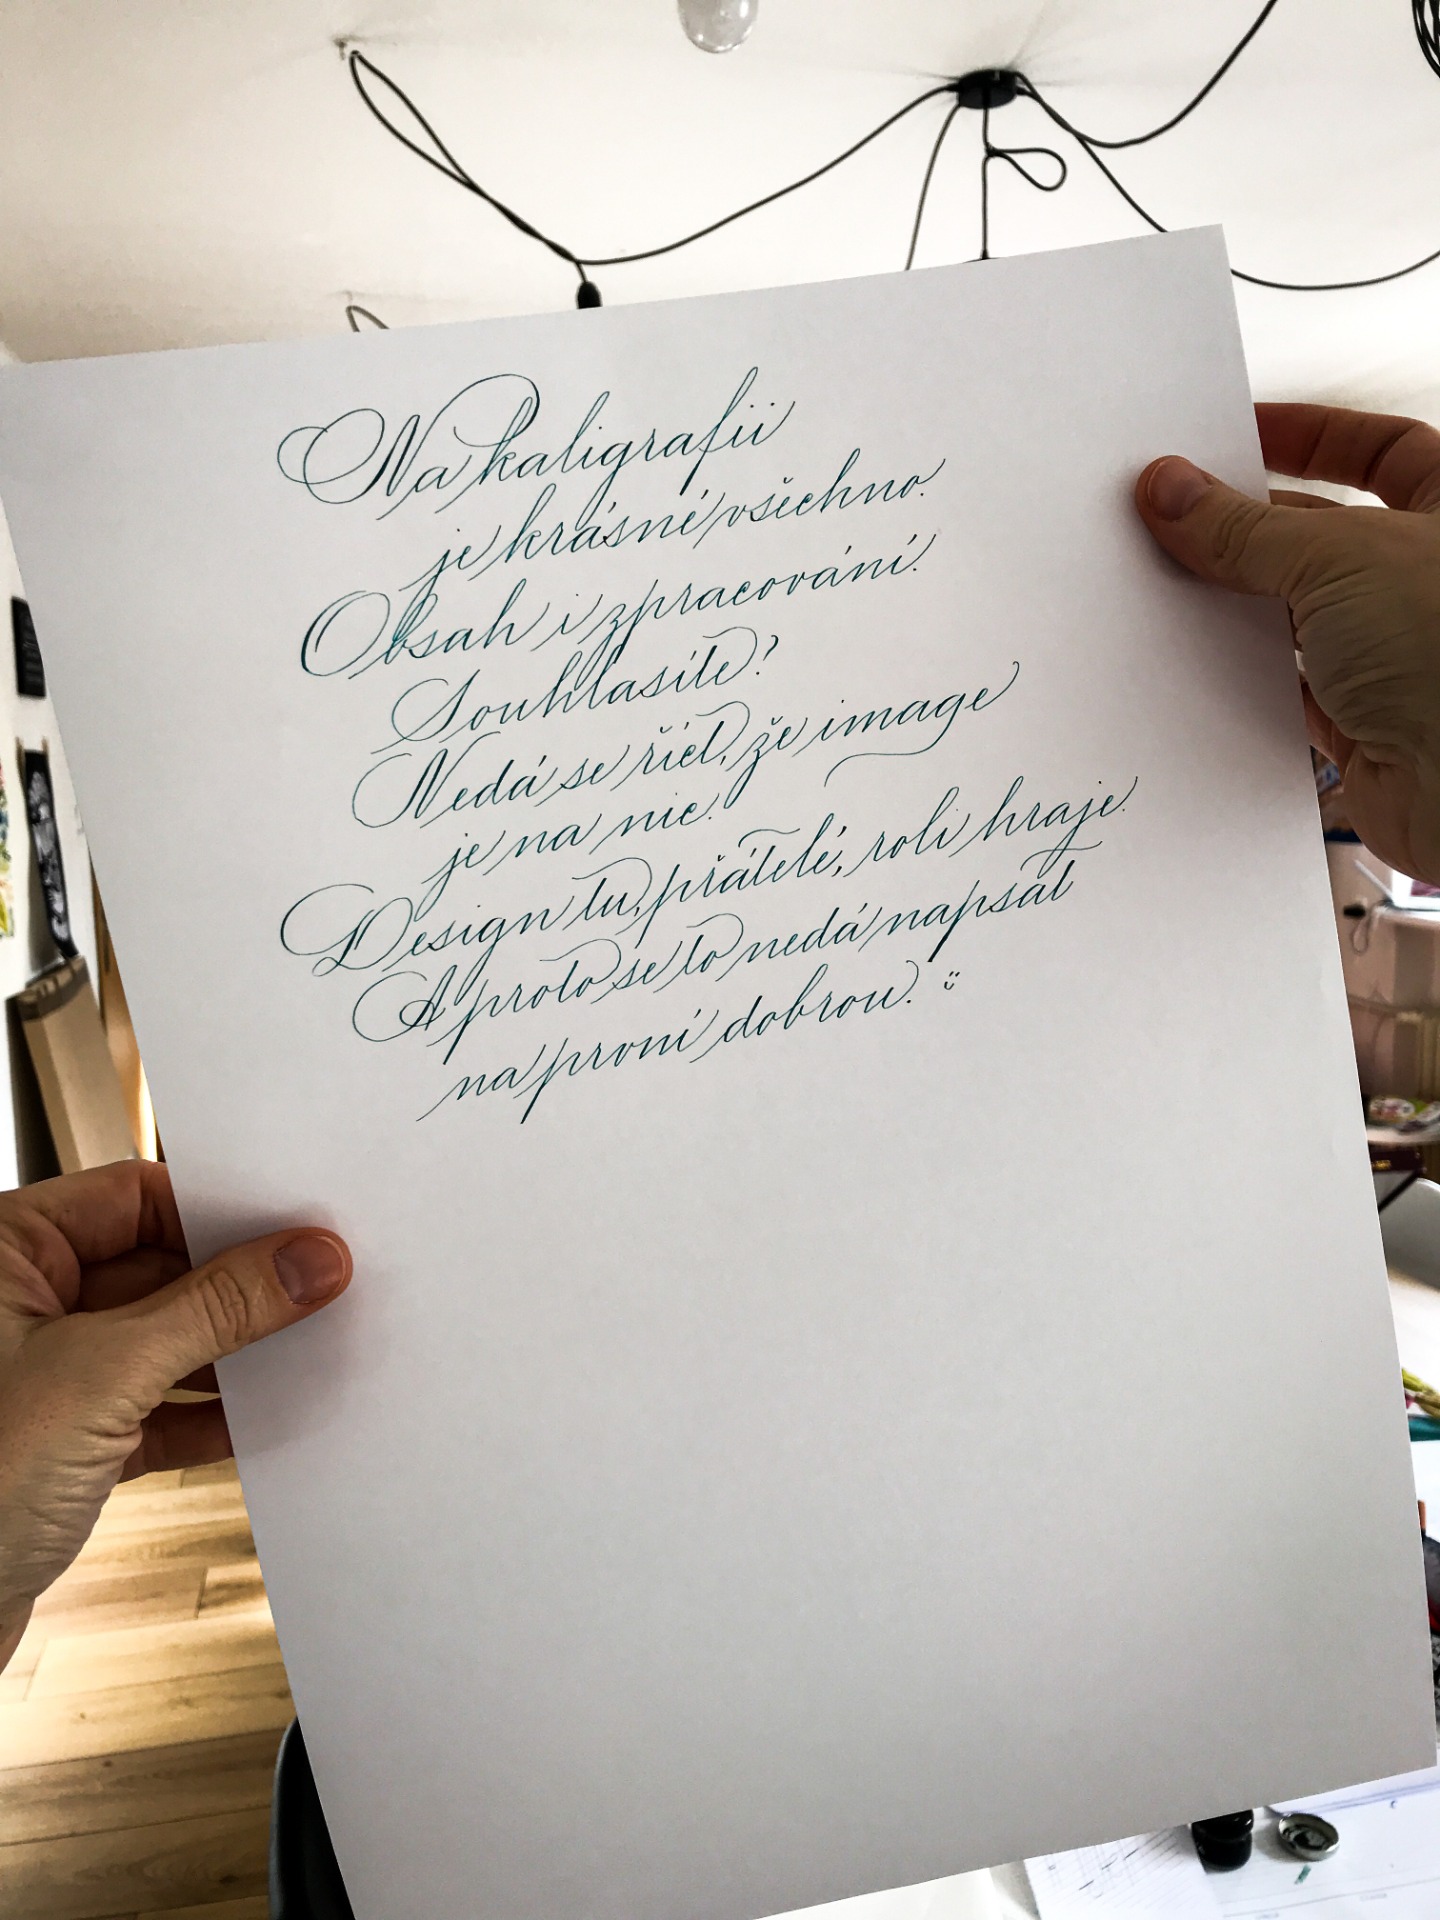 Na kaligrafii
je krásné všechno.
Obsah i zpracování.
Souhlasíte?
Nedá se říct, že image
je na nic.
Design tu, přátelé, roli hraje.
A proto se to nedá napsat
na první dobrou. :)